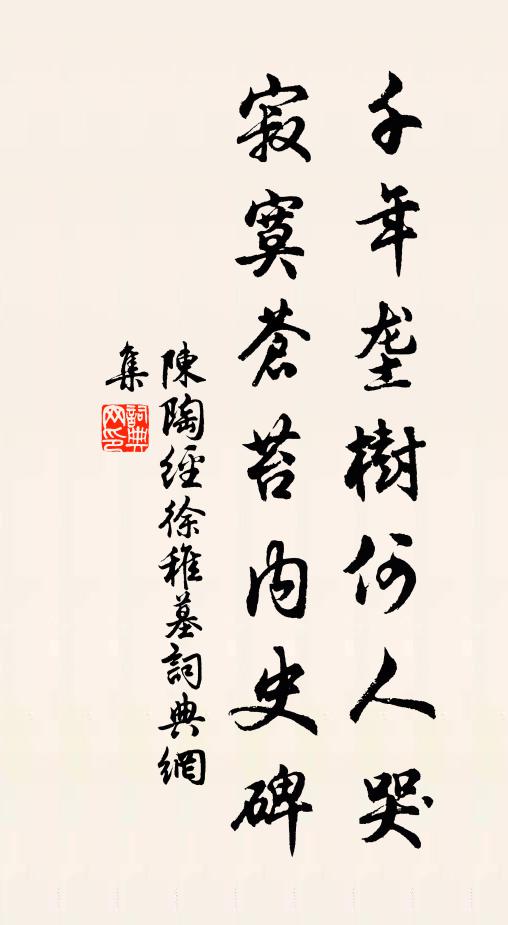 千年垄樹何人哭
寂寞蒼苔内史碑
陳陶經徐稚墓詞典網
集
詞典
网印